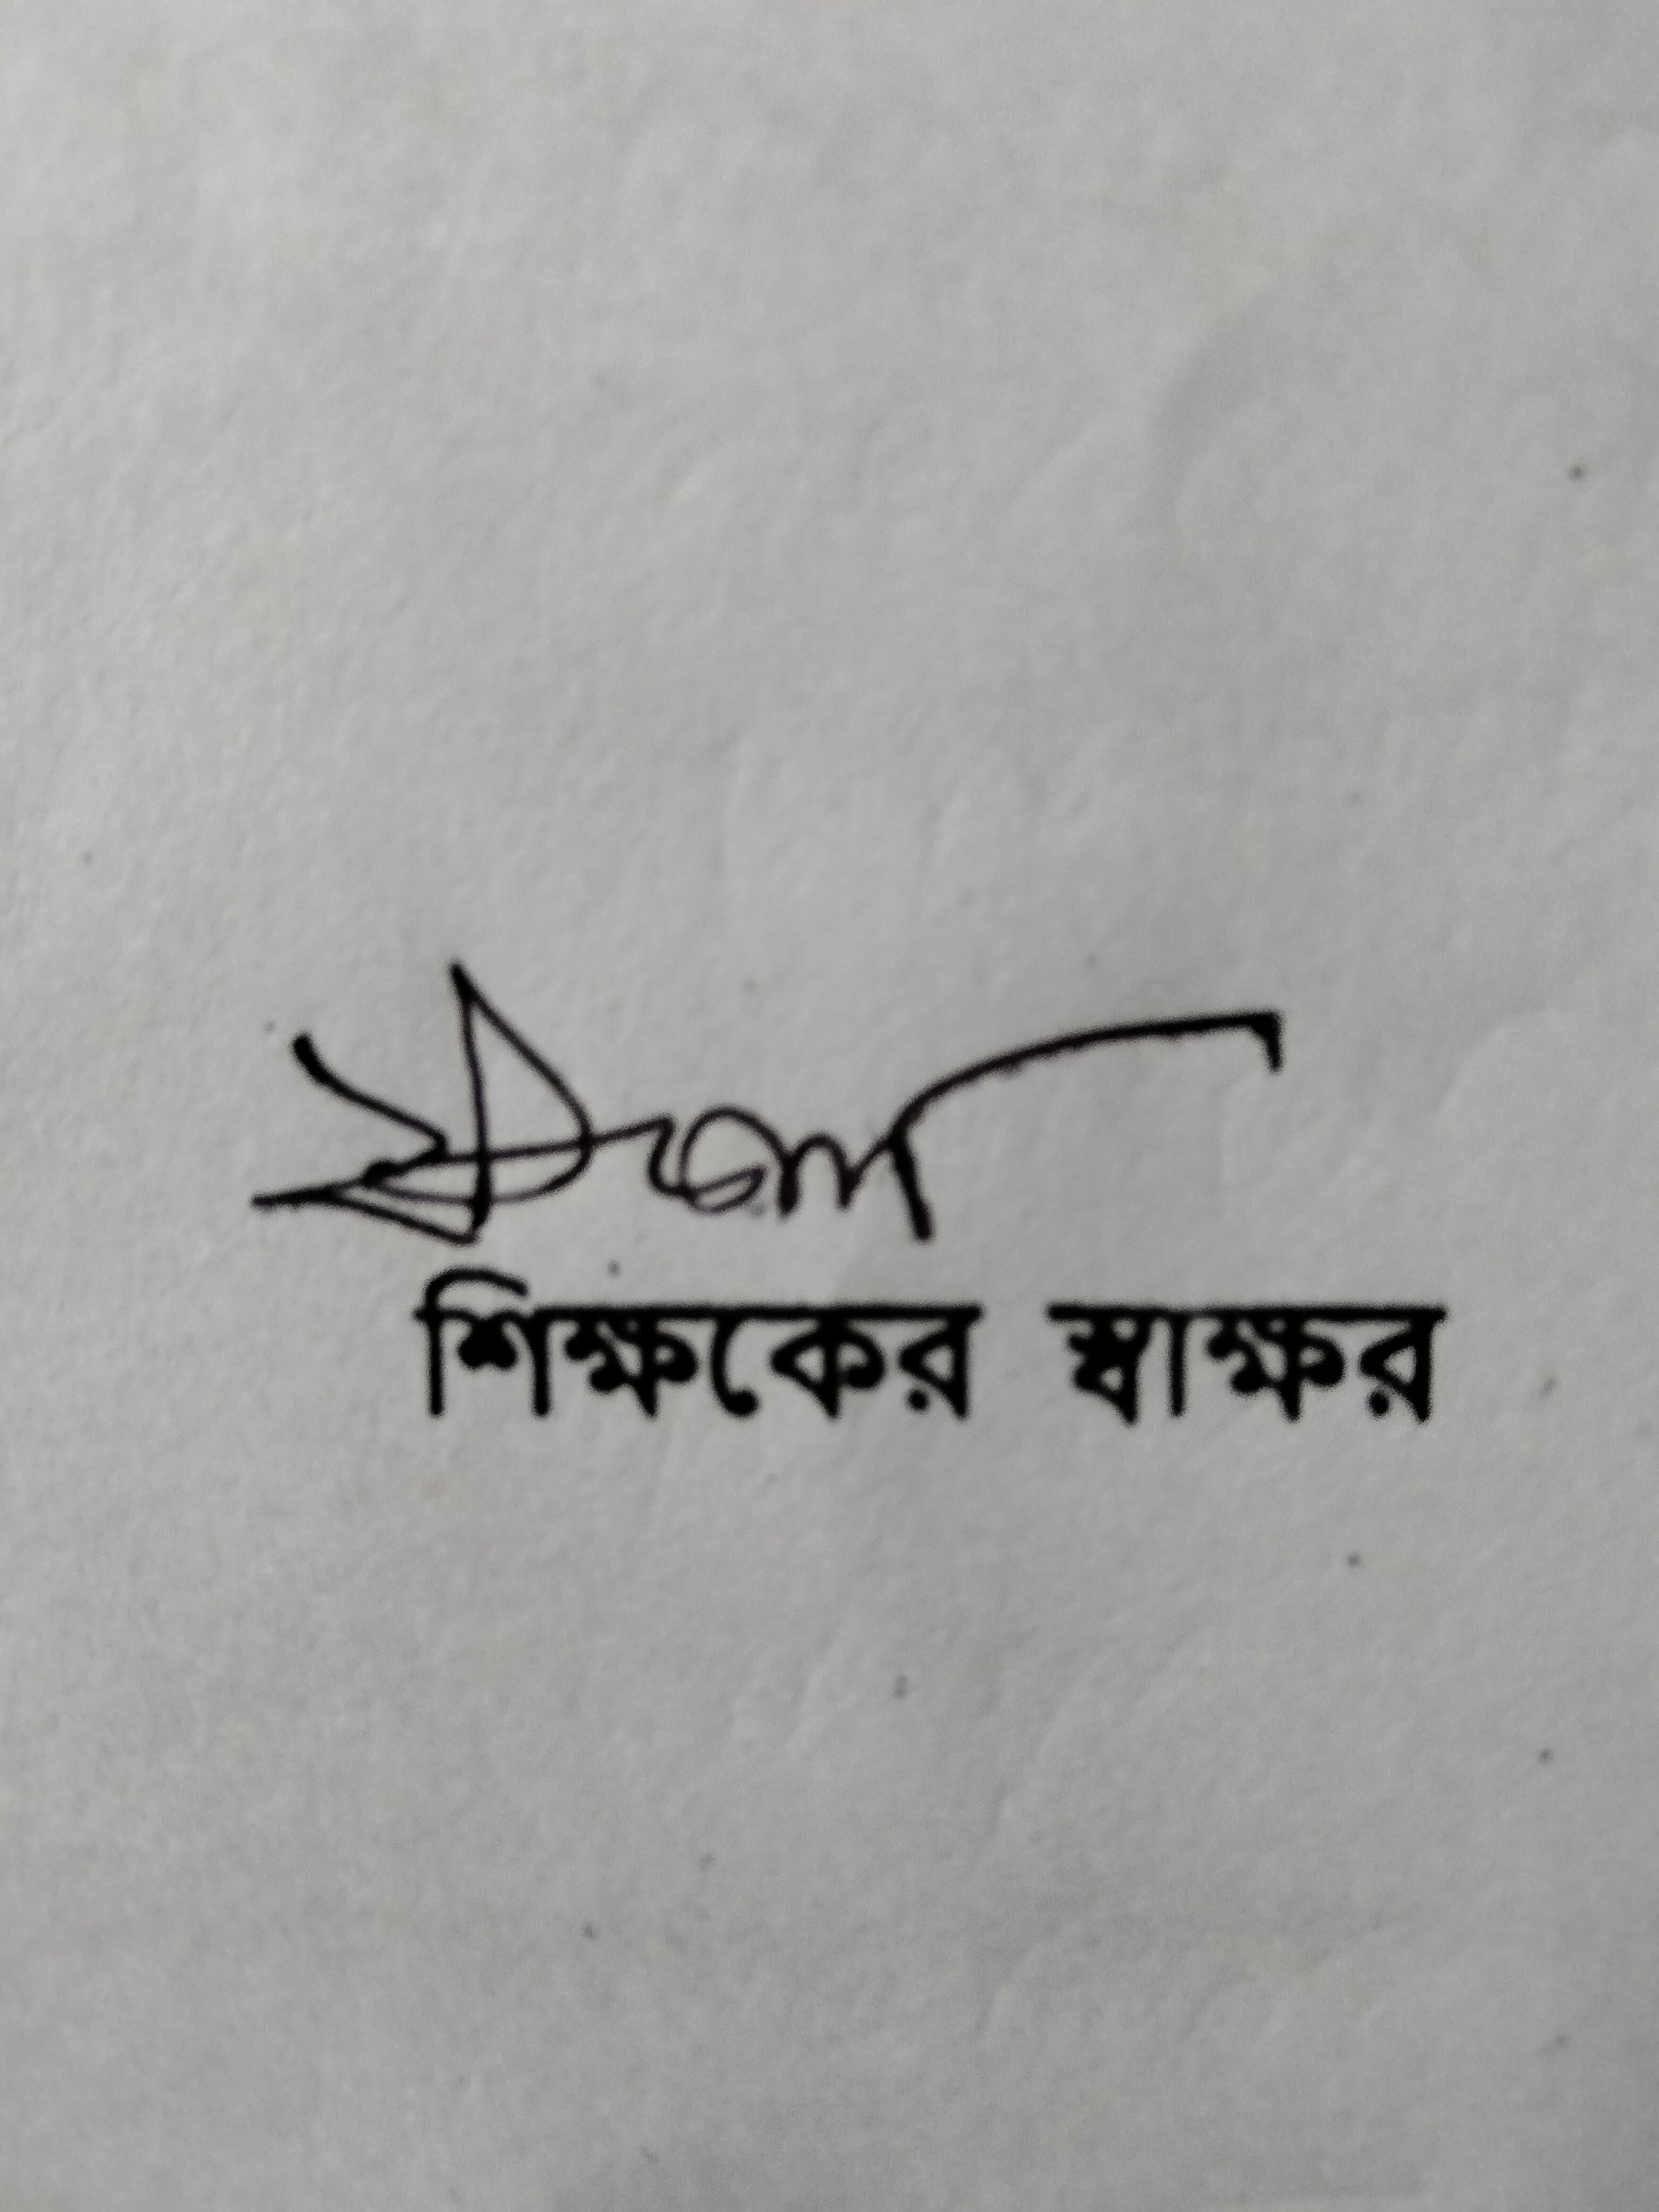 শিক্ষকের স্বাক্ষর